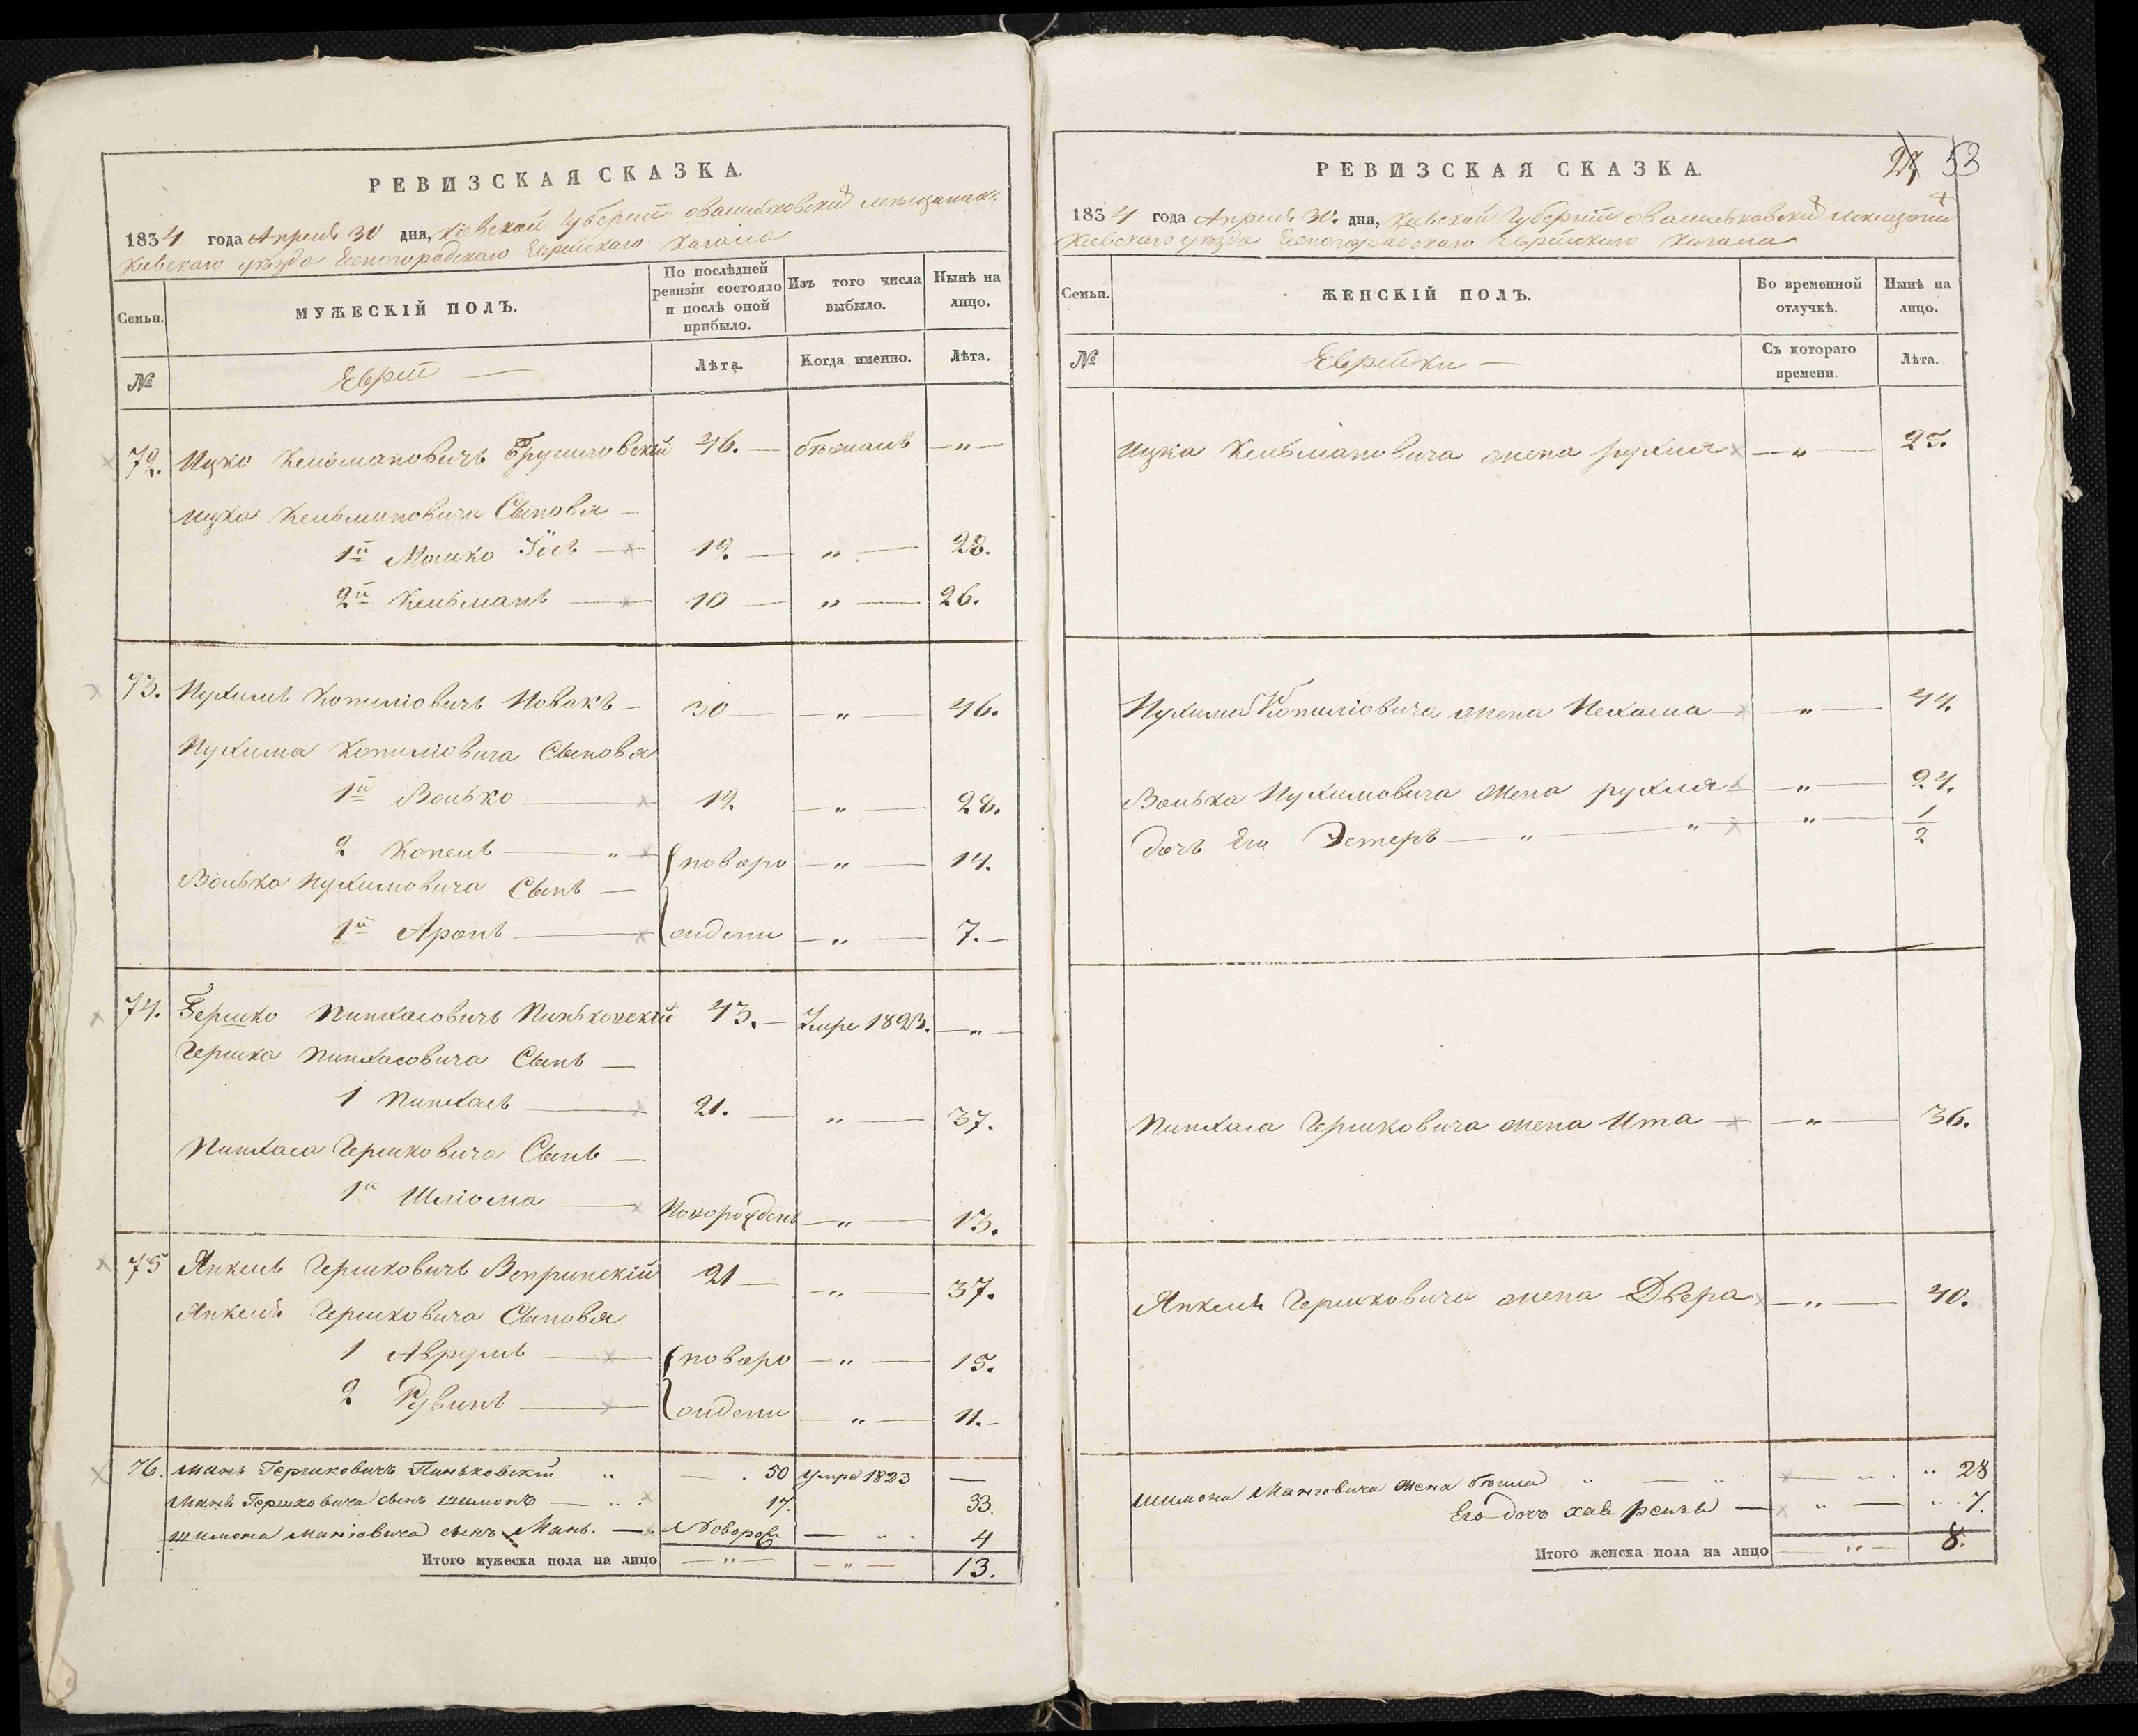 РЕВИЗСКАЯ СКАЗКА.
1834 года Апреля 30 дня, Кіевской Губерніи о васильковскихъ мѣщанахъ
Кіевскаго уѣзда Бѣлогородскаго Еврейскаго Кагала
Семьи.
МУЖЕСКІЙ ПОЛЪ.
По послѣдней ревизіи состояло и послѣ оной прибыло.
Изъ того числа выбыло.
Нынѣ на лицо.
№
Евреи —
Лѣта.
Когда именно.
Лѣта.
72. Ицко Кельмановичъ Брусиловскій 46. — бѣжалъ — „ —
Ицка Кельмановича Сыновья —
1й Мошко Іось — 12. — „ — 28.
2й Кельманъ — 10 — „ — 26.
73. Нухимъ Копиліовичъ Новакъ — 30 — „ — 46.
Нухима Копиліовича Сыновья
1й Волько — 12. — „ — 28.
2 Копель — „ — новоро — „ — 14.
Волька Нухимовича Сынъ —
1й Аронъ — ждени — „ — 7. —
74. Гершко Пинхасовичъ Пиньковскій 43. — Умре 1823. — „ —
Гершка Пинхасовича Сынъ —
1 Пинхасъ — 21. — „ — 37.
Пинхаса Гершковича Сынъ —
1й Шліома — Новорожденъ — „ — 13.
75 Янкель Гершковичъ Вепринскій 21 — „ — 37.
Янкеля Гершковича Сыновья
1 Аврумъ — новоро — „ — 15.
2 Рувинъ — ждени — „ — 11. —
76. Мань Гершковичъ Пиньковскій „ — . 50 умре 1823 —
Маня Гершковича сынъ шимонъ — 17. 33.
шимона Маніовича сынъ Мань. — Новорож — 4
Итого мужеска пола на лицо — „ — — „ — 13.
27 53
РЕВИЗСКАЯ СКАЗКА.
1834 года Апреля 30. дня, Кіевской Губерніи о васильковскихъ мѣщанахъ
Кіевскаго уѣзда Бѣлогородскаго Еврейскаго Кагала
Семьи.
ЖЕНСКІЙ ПОЛЪ.
Во временной отлучкѣ.
Нынѣ на лицо.
№
Еврейки —
Съ котораго времени.
Лѣта.
Ицка Кельмановича жена рухля — „ — 25.
Нухима Копиліовича жена Нехама — „ — 44.
Волька Нухимовича жена рухля — „ — 24.
дочь Его Эстеръ — „ — „ — „ — 1/2
Пинхаса Гершковича жена Ита — „ — 36.
Янкеля Гершковича жена Двера — „ — 40.
Шимона Маніовича жена бейла „ — „ — „ 28
Его дочь хава — „ — 7.
Итого женска пола на лицо — „ — 8.